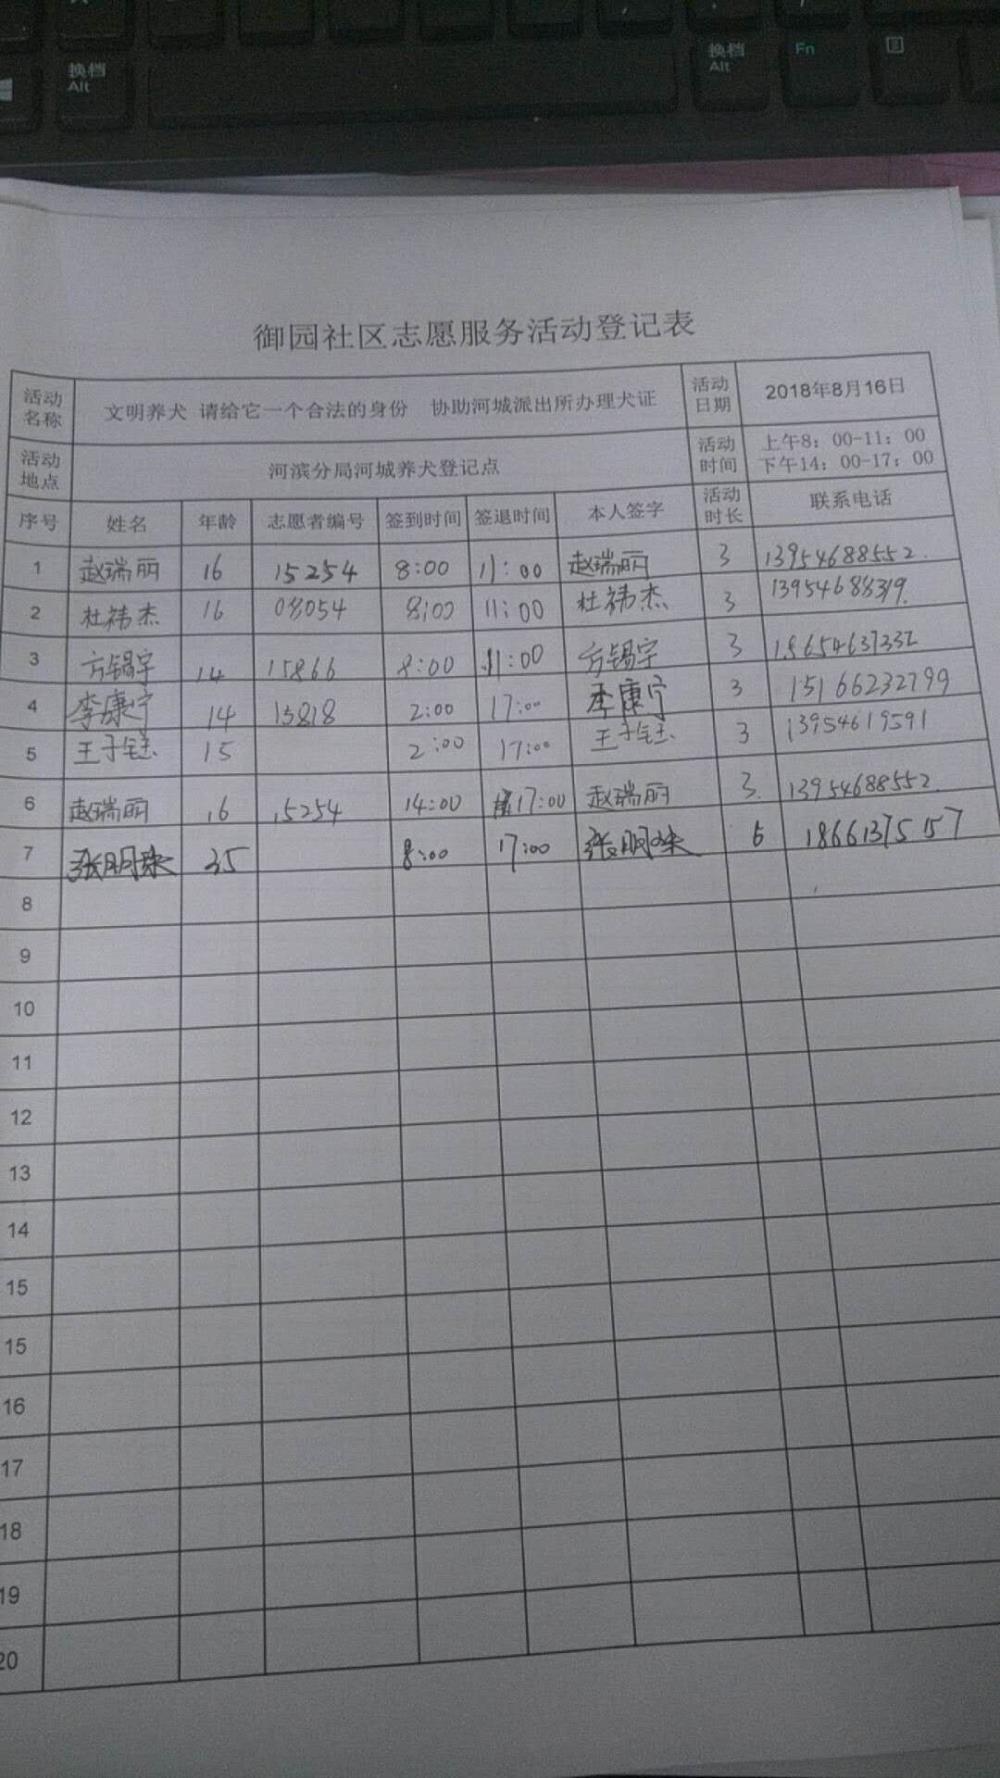 换档
Alt
换档
Alt
Fn
御园社区志愿服务活动登记表
活动名称 文明养犬 请给它一个合法的身份 协助河城派出所办理犬证 活动日期 2018年8月16日
活动地点 河滨分局河城养犬登记点 活动时间 上午8：00-11：00
下午14：00-17：00
序号 姓名 年龄 志愿者编号 签到时间 签退时间 本人签字 活动时长 联系电话
1 赵瑞丽 16 15254 8:00 11:00 赵瑞丽 3 13954688552.
2 杜祎杰 16 08054 8:00 11:00 杜祎杰 3 13954688319.
3 方锡宇 14 15866 8:00 11:00 方锡宇 3
4 李康宁 14 15818 2:00 17:00 李康宁 3 15166232799
5 王子钰 15 2:00 17:00 王子钰 3 13954619591
6 赵瑞丽 16 15254 14:00 17:00 赵瑞丽 3. 13954688552.
7 张明珠 35 8:00 17:00 张明珠 6 18661375157
8
9
10
11
12
13
14
15
15
16
17
18
19
20